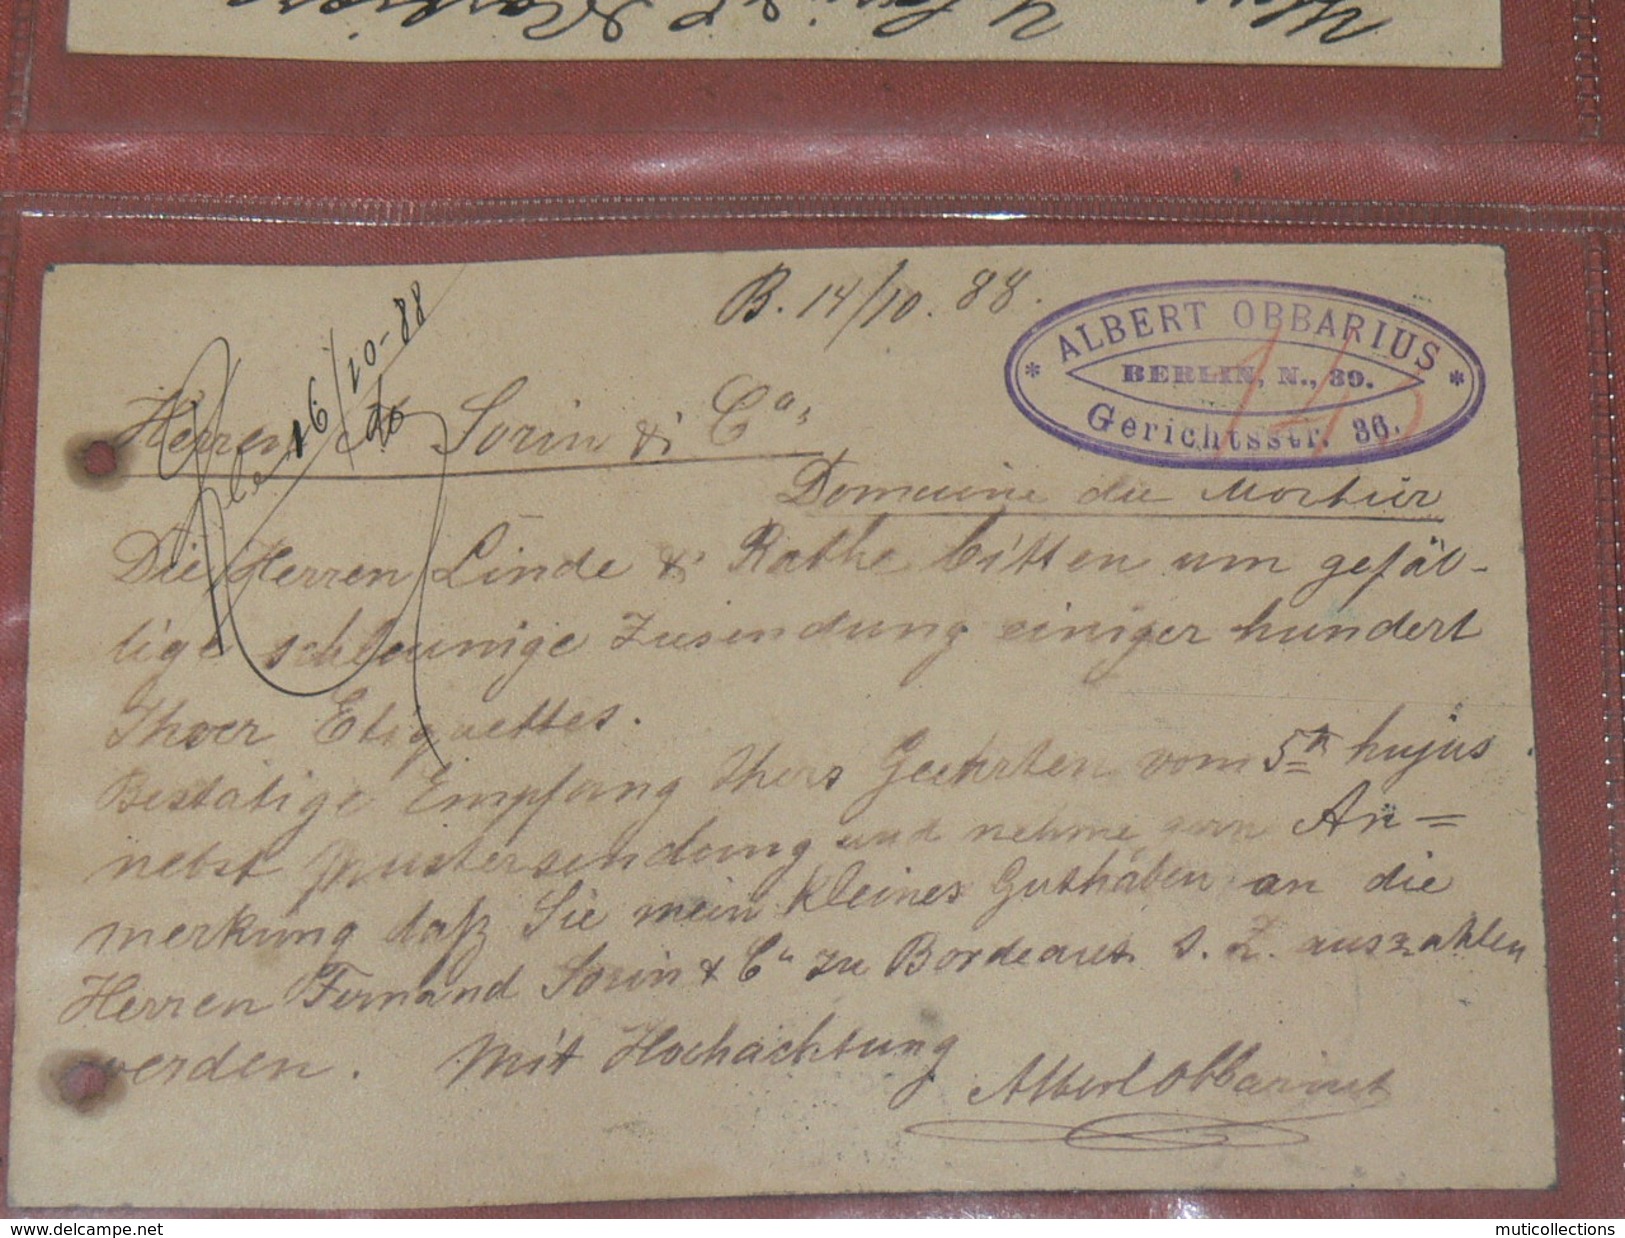 B. 14/10. 88.
* ALBERT OBBARIUS *
BERLIN, N., 39.
Gerichtsstr. 36.
143
16/10-88
Herren Sorin & Co,
Domaine du Mortier
Die Herren Linde & Rathe bitten um gefäl-
lige schleunige Zusendung einiger hundert
Ihrer Etiquettes.
Bestätige Empfang Ihres Geehrten vom 5tn hujus
nebst Mustersendung und nehme gern An=
merkung daß Sie mein kleines Guthaben an die
Herren Fernand Sorin & Co zu Bordeaux s. Z. auszahlen
werden. Mit Hochachtung
Albert Obbarius
www.delcampe.net
muticollections